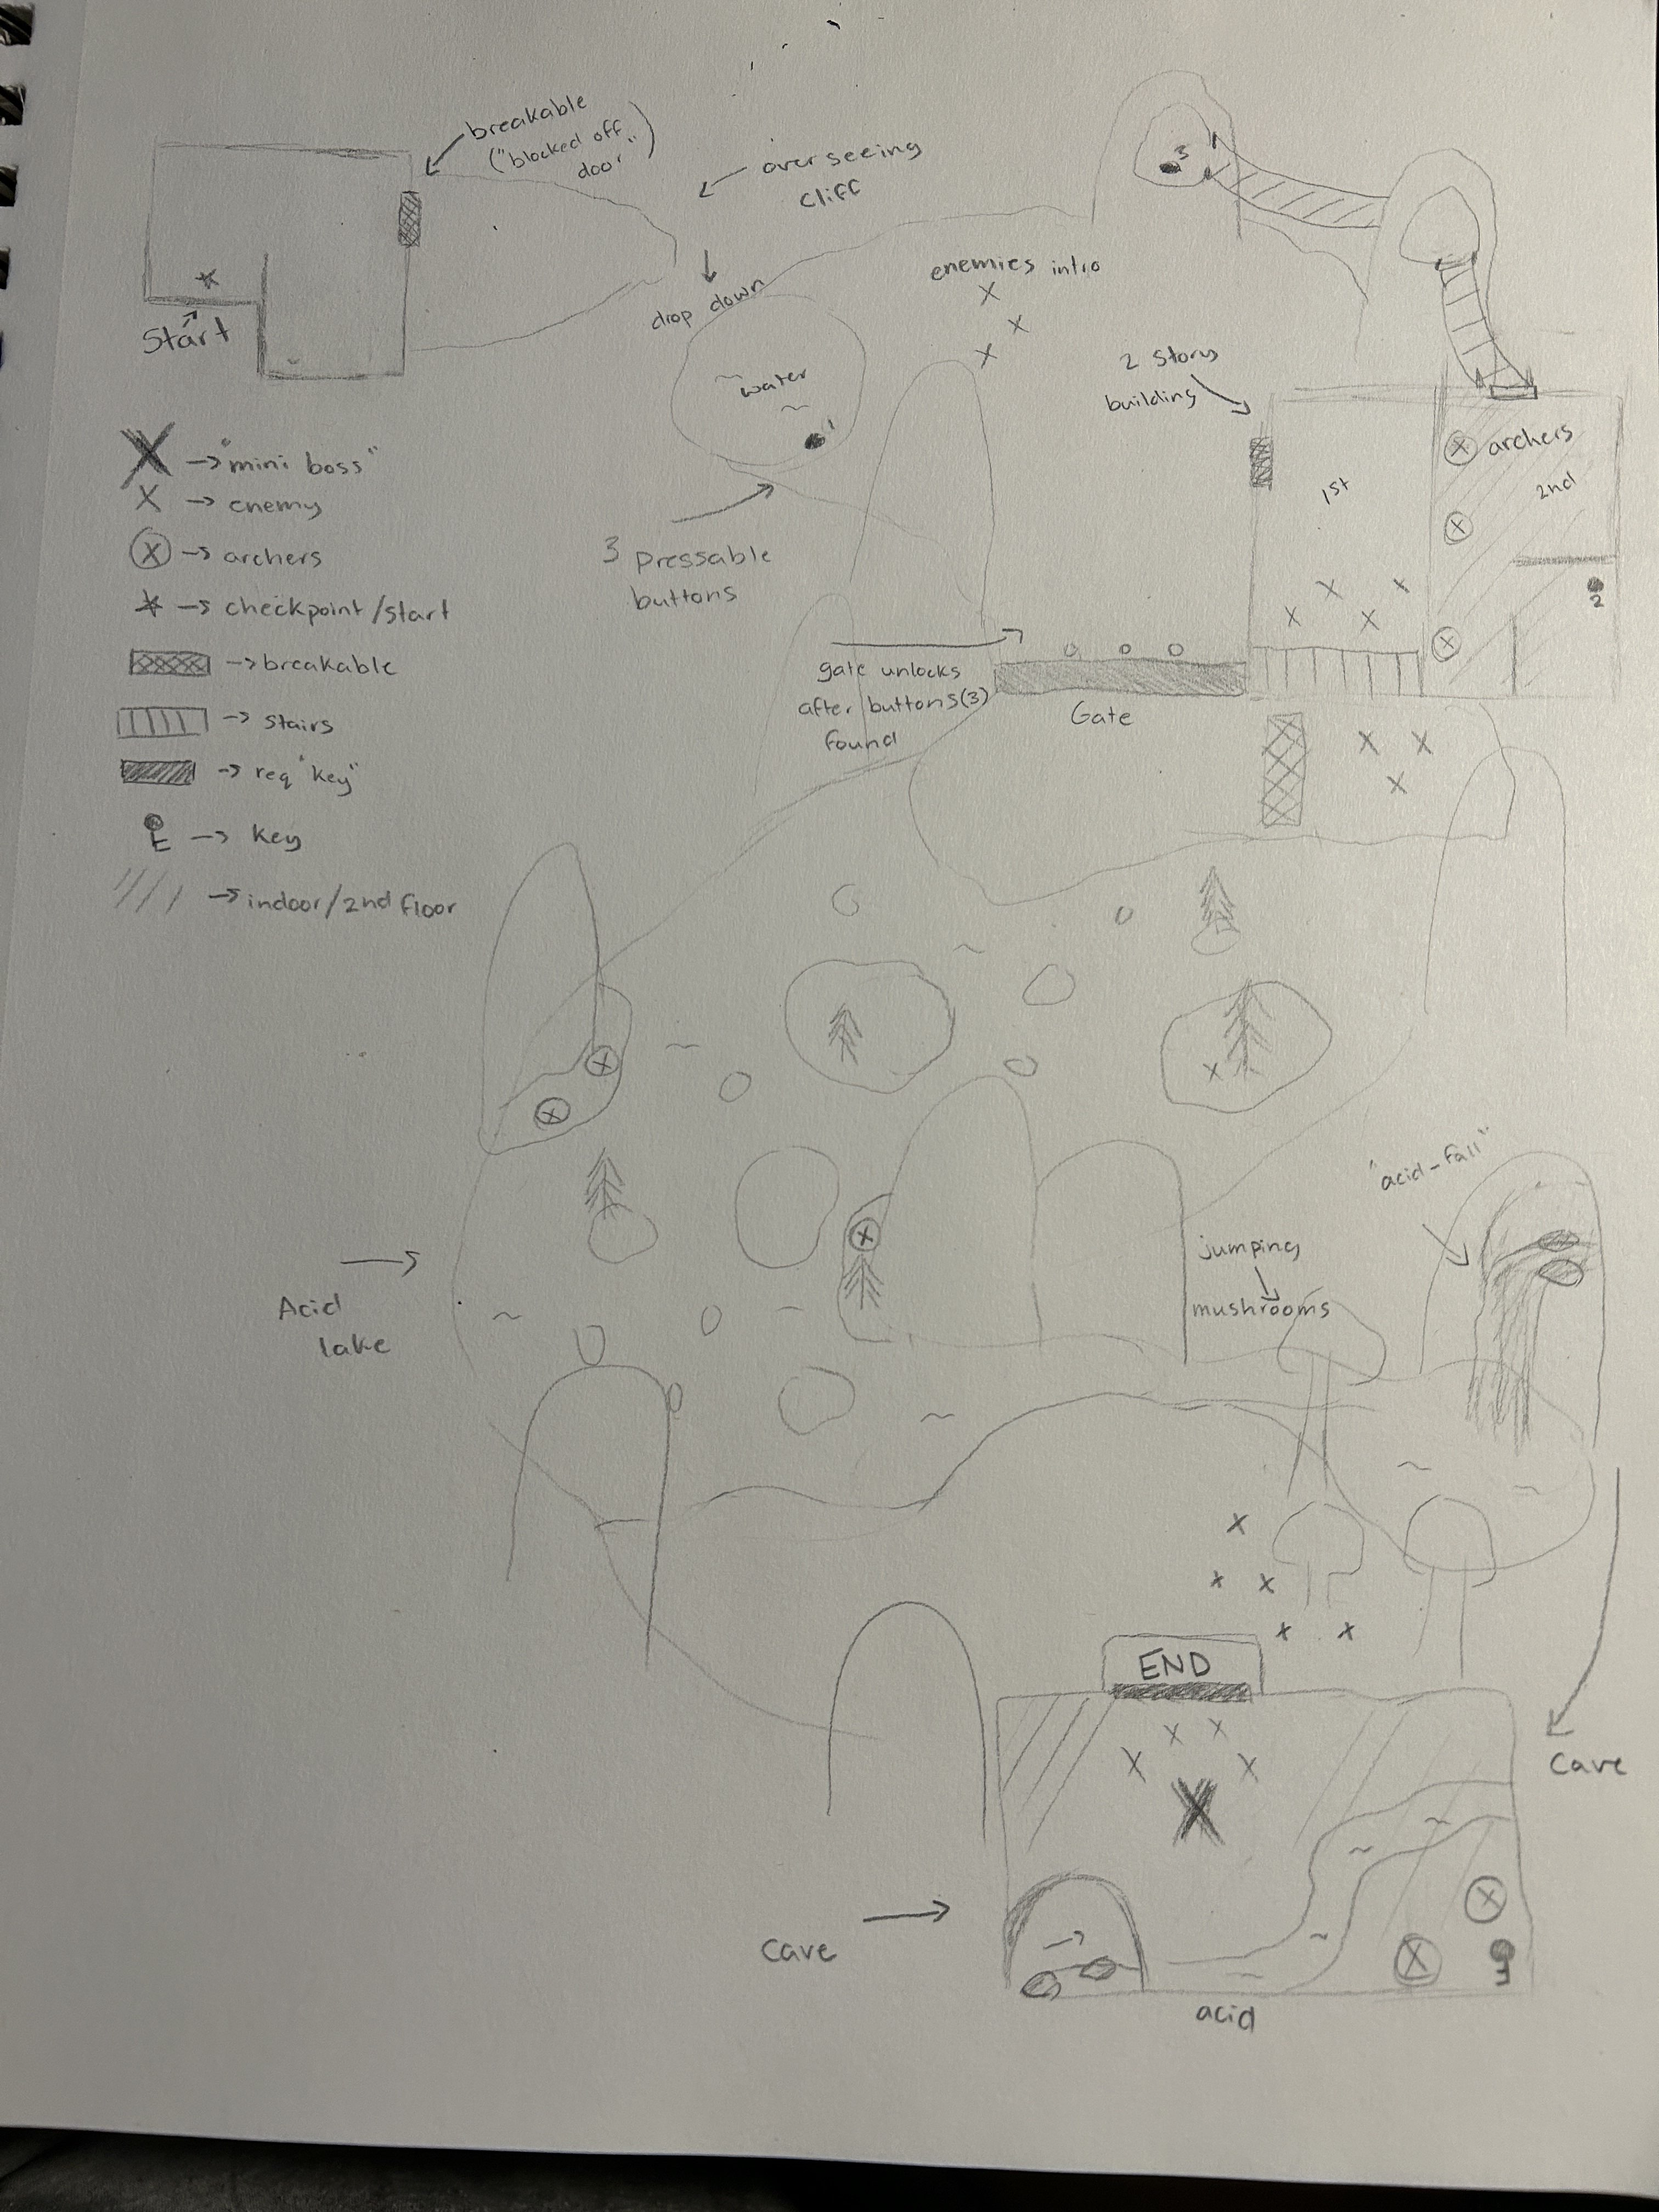 breakable
("blocked off
door")
over seeing
cliff
3
drop down
enemies intro
X
X
X
Start
water
1
2 story
building
archers
1st
2nd
2
X → "mini boss"
X → enemy
X → archers
* → checkpoint/start
→ breakable
→ stairs
→ req "key"
→ key
→ indoor/2nd floor
3 pressable
buttons
gate unlocks
after buttons(3)
found
Gate
"acid-fall"
jumping
mushrooms
Acid
lake
END
cave
cave
acid